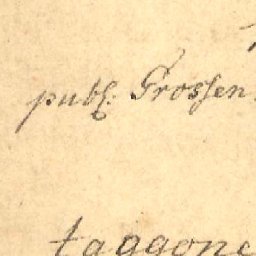 publ. Grossen
taggone